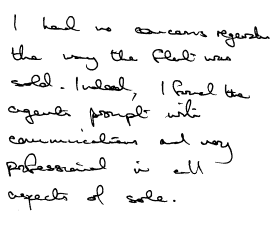 I had no concerns regarding
the way the flat was
sold. Indeed, I found the
agents prompt with
communications and very
professional in all
aspects of sale.